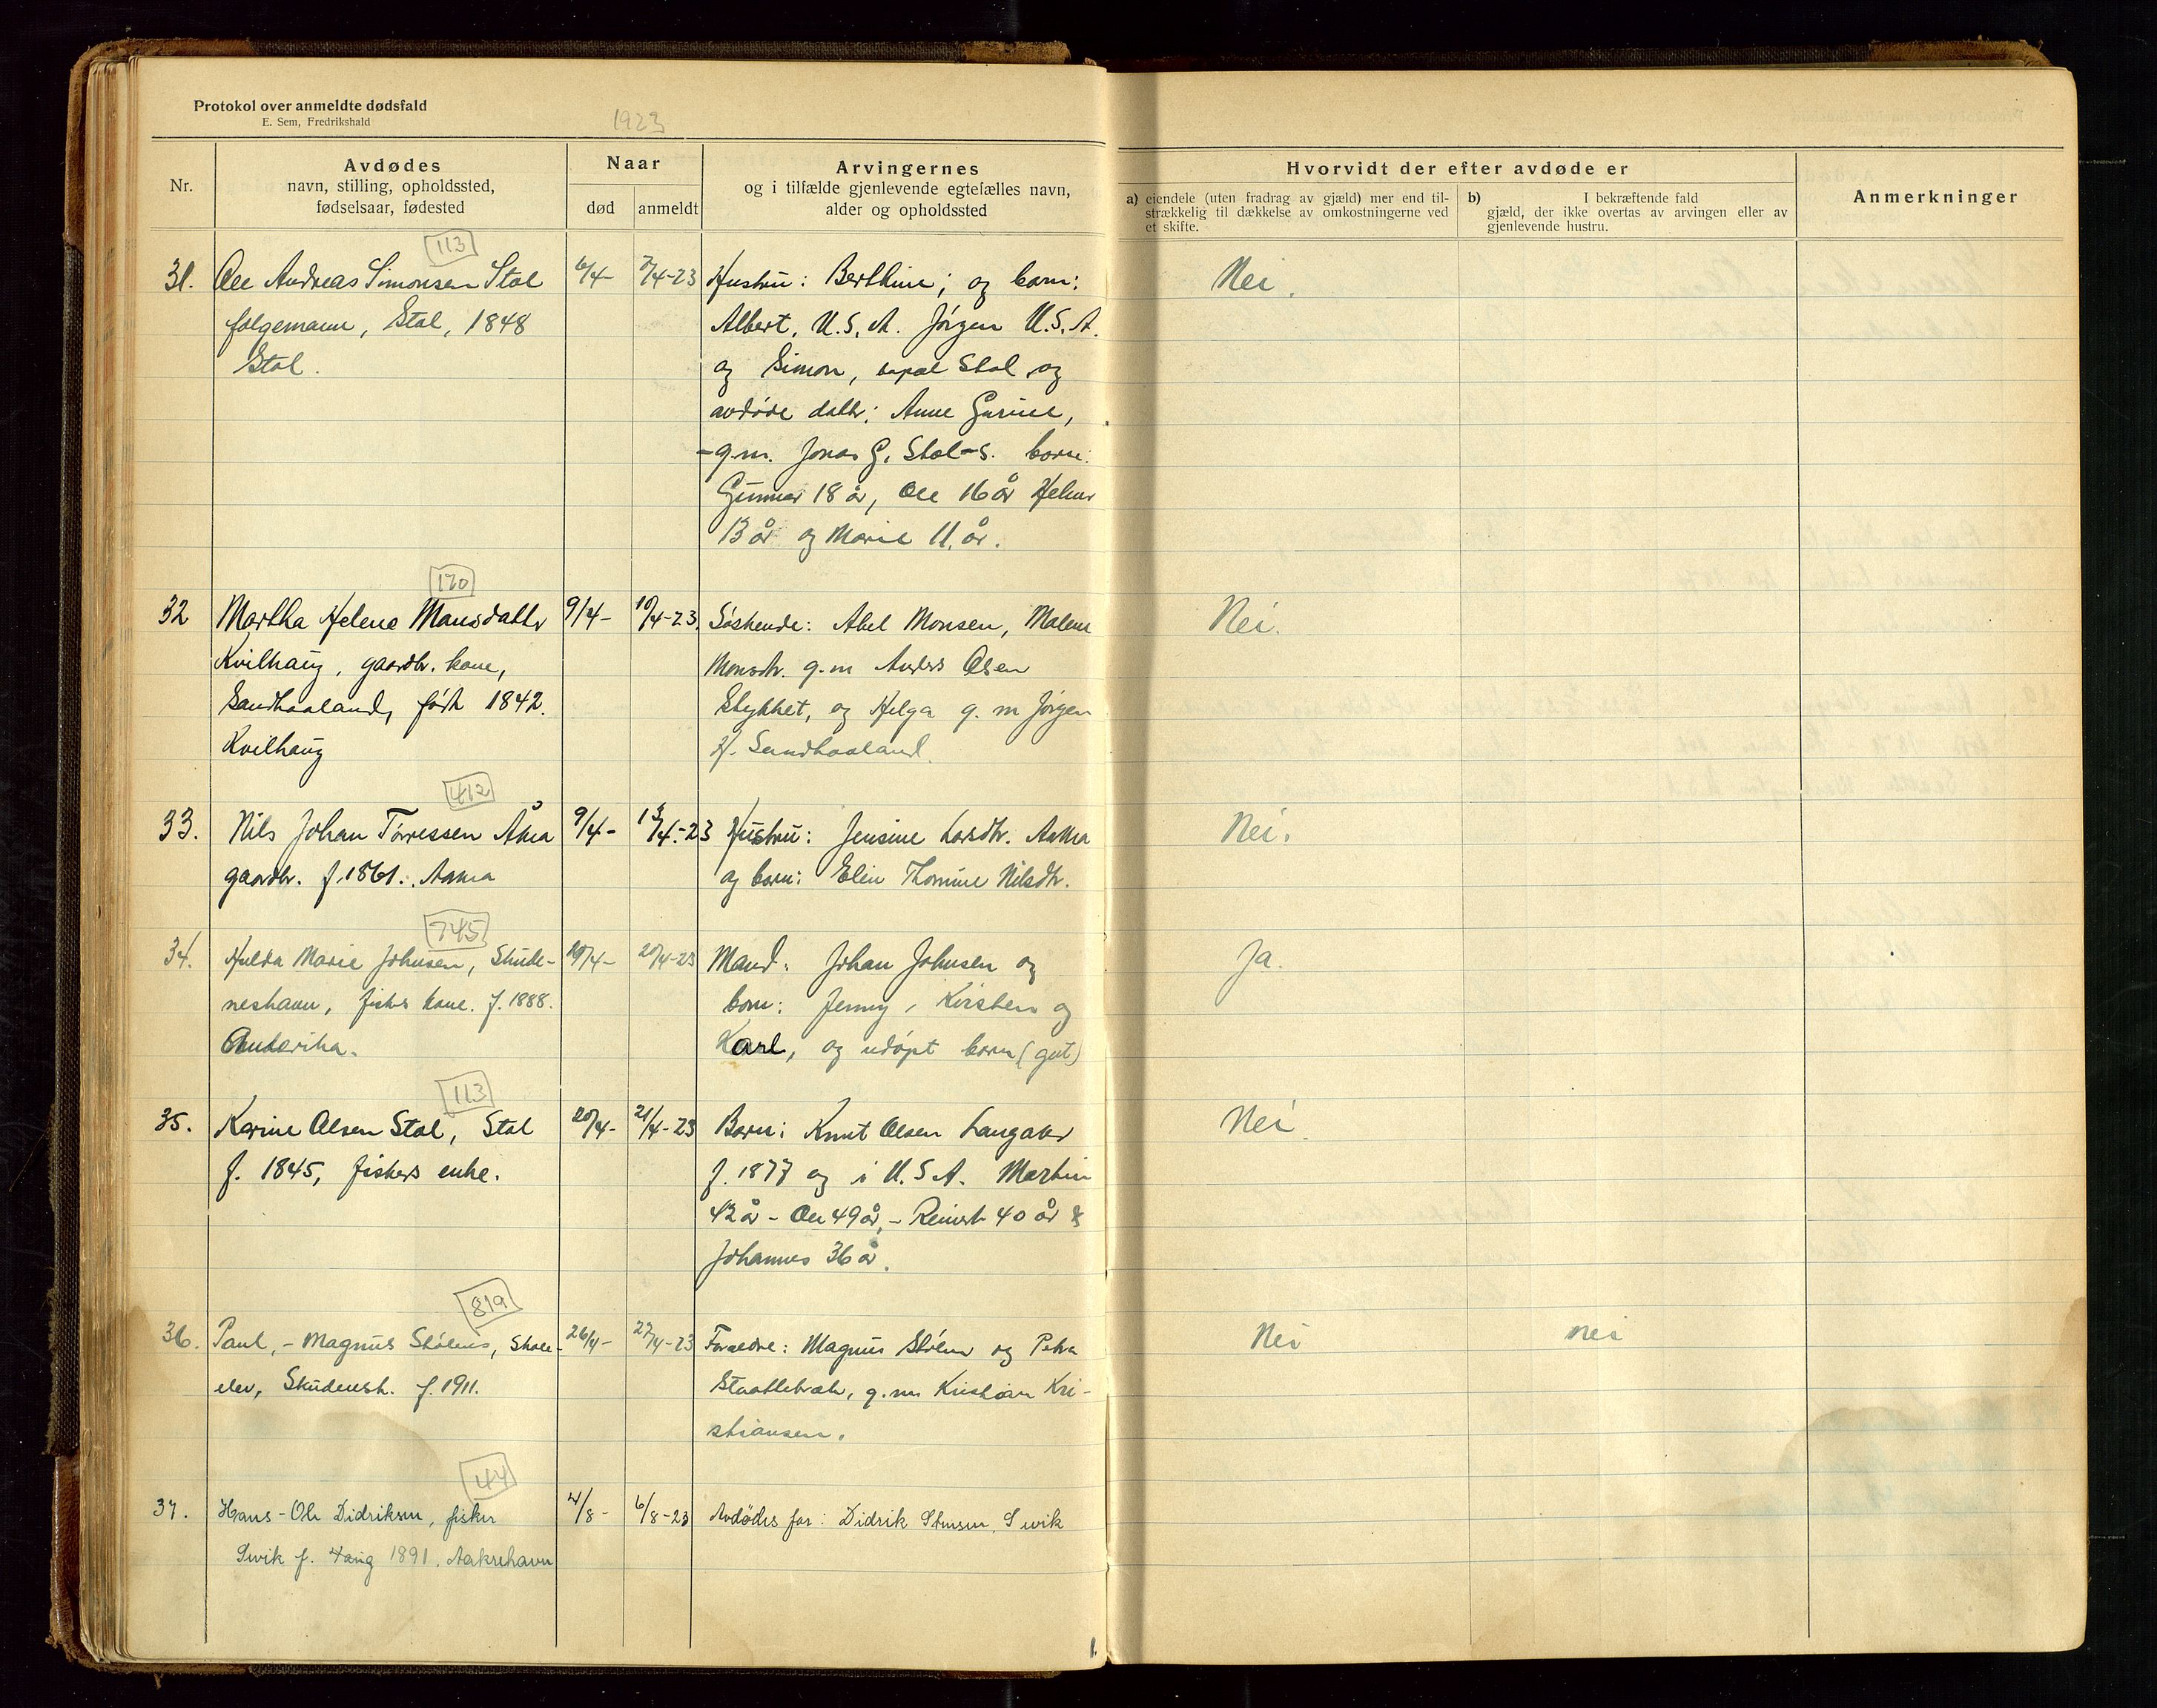 Protokol over anmeldte dødsfald
E. Sem, Fredrikshald
1923
Nr.
Avdødes
navn, stilling, opholdssted,
fødselsaar, fødested
Naar
død
anmeldt
Arvingernes
og i tilfælde gjenlevende egtefælles navn,
alder og opholdssted
Hvorvidt der efter avdøde er
a) eiendele (uten fradrag av gjæld) mer end til-
strækkelig til dækkelse av omkostningerne ved
et skifte.
b) I bekræftende fald
gjæld, der ikke overtas av arvingen eller av
gjenlevende hustru.
Anmerkninger
113
31. Ole Andreas Simonsen Stol
folgemann, Stol, 1848
Stol.
6/4- 7/4-23
Hustru: Berthine; og born:
Albert, U.S.A. Jörgen U.S.A.
og Simon, Stol og
avdöde dattr: Anne Gurine,
-g.m. Jonas G. Stol-s. born:
Gunnar 18 år, Ole 16 år Helmer
13 år og Marie 11 år.
Nei.
170
32 Martha Helene Monsdattr
Kvilhaug, gaardbr. kone,
Sandhaaland, född 1842.
Kvilhaug
9/4- 10/4-23.
Söskende: Abel Monsen, Malene
Monsdtr. g.m Anders Olsen
Stykket, og Helga g. m Jörgen
H. Sandhaaland.
Nei.
412
33. Nils Johan Törressen Åma
gaardbr. f. 1861. Aama
9/4- 13/4-23
Hustru: Jensine Larsdtr. Aama
og born: Elin Thomine Nilsdtr.
Nei.
745
34. Hulda Marie Johnsen, Skude-
neshavn, fiskers kone. f. 1888.
Amerika.
19/4- 20/4-23
Mand: Johan Johnsen og
born: Jenny, Kristen og
Karl, og udöpt born (gut)
Ja.
113
35. Karine Olsen Stol, Stol
f. 1845, fiskers enke.
20/4- 21/4-23
Born: Knut Olsen Langaker
f. 1877 og i U.S.A. Martin
42 år - Ole 49 år, - Reinert 40 år &
Johannes 36 år.
Nei.
819
36. Paul, - Magnus Stölens, Skole-
elev, Skudenesh. f. 1911.
26/4- 27/4-23
Foraeldre: Magnus Stölen og Petra
g.m Kristian Kri-
stiansen.
Nei nei
44
37. Hans - Ole Didriksen, fisker
Sevik f. 4 aug 1891. Aakrehavn
4/8- 6/8-23
Avdødes far: Didrik Stensen, Sevik
1.